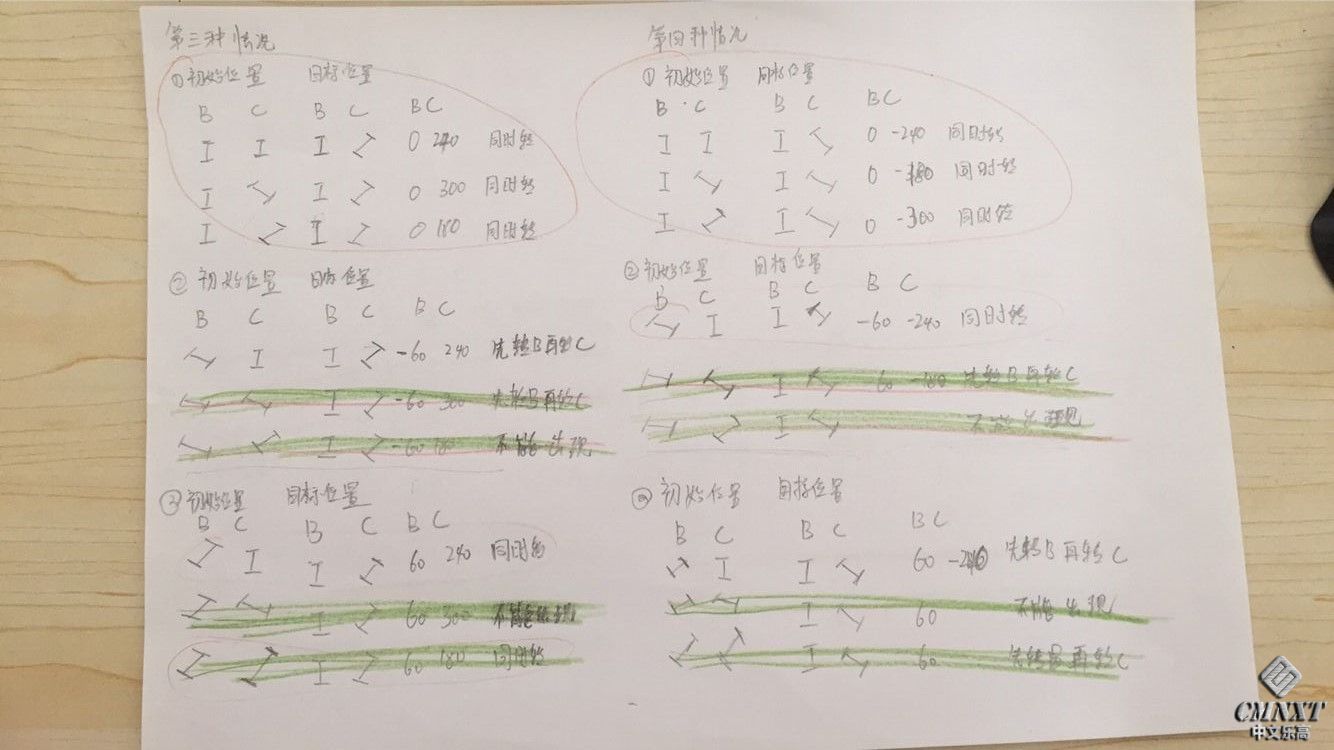 第三种情况
①初始位置 目标位置
B C B C B C
I I I I 0 240 同时转
I I I I 0 300 同时转
I I I I 0 180 同时转
②初始位置 目标位置
B C B C B C
I I I I -60 240 先转B再转C
I I I I -60 300 先转B再转C
I I I I -60 180 不能出现
③初始位置 目标位置
B C B C B C
I I I I 60 240 同时转
I I I I 60 300 不能出现
I I I I 60 180 同时转
第四种情况
①初始位置 目标位置
B C B C B C
I I I I 0 -240 同时转
I I I I 0 -180 同时转
I I I I 0 -300 同时转
②初始位置 目标位置
B C B C B C
I I I I -60 -240 同时转
I I I I 60 -180 先转B再转C
I I I I 不能出现
③初始位置 目标位置
B C B C B C
I I I I 60 -240 先转B再转C
I I I I 60 不能出现
I I I I 60 先转B再转C
CMNXT
中文乐高